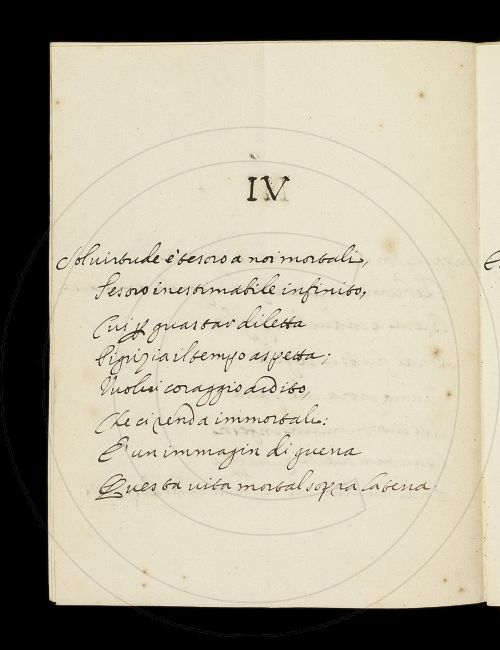 IV
Sol virtude è tesoro a noi mortali,
Tesoro inestimabile infinito,
Cui guastar diletta
Pigrizia il tempo aspetta;
Vuolvi coraggio ardito,
Che ci renda immortali:
È un immagin di guerra
Questa vita mortal sopra la terra.